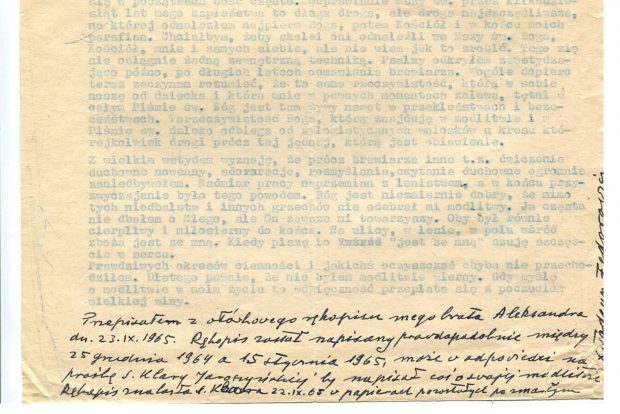 się w początkach dość często. Odprawianie Mszy św. przez kilkadzie-
siąt lat mego kapłaństwa to długa droga, ale droga najszczęśliwsza,
na której odnalazłem najpierw Boga, potem Kościół i w końcu moich
parafian. Chciałbym, żeby skolei oni odnaleźli we Mszy św. Boga,
Kościół, mnie i samych siebie, ale nie wiem jak to zrobić. Tego się
nie osiągnie żadną zewnętrzną techniką. Psalmy odkryłem zawstydza-
jąco późno, po długich latach odmawiania brewiarza. Wogóle dopiero
teraz zaczynam rozumieć, że ta sama rzeczywistość, którą w sobie
noszę od dziecka i która mnie w pewnych momentach zalewa, tętni w
całym Piśmie św. Bóg jest tam żywy nawet w przekleństwach i beze-
ceństwach. Ta rzeczywistość Boga, którą znajduję w modlitwie i
Piśmie św. daleko odbiega od sylogistycznych wniosków u kresu któ-
rejkolwiek drogi prócz tej jednej, którą jest objawienie.
Z wielkim wstydem wyznaję, że prócz brewiarza inne t.zw. ćwiczenia
duchowne nowenny, adorację, rozmyślania, czytanie duchowne ogromnie
zaniedbywałem. Nadmiar pracy naprzemian z lenistwem, a w końcu przy-
zwyczajenie było tego powodem. Bóg jest niezmiernie dobry, że mimo
tych niedbalstw i innych grzechów nie odebrał mi modlitwy. Ja często
nie dbałem o Niego, ale On zawsze mi towarzyszy. Oby był równie
cierpliwy i miłosierny do końca. Na ulicy, w lesie, w polu wśród
zboża jest ze mną. Kiedy piszę to "jest ze mną" czuję szczęś-
cie w sercu.
Prawdziwych okresów ciemności i jakichś oczyszczeń chyba nie przecho-
dziłem. Dlatego pewnie, że nie byłem modlitwie wierny. Gdy myślę
o modlitwie w moim życiu to wdzięczność przeplata się z poczuciem
wielkiej winy.
Przepisałem z ołówkowego rękopisu mego brata Aleksandra
dn. 23.IX.1965. Rękopis został napisany prawdopodobnie między
25 grudnia 1964 a 15 stycznia 1965, może w odpowiedzi na
prośbę s. Klary by napisał coś o swojej modlitwie
Rękopis znalazła s. Klara 22.IX.65 w papierach pozostałych po zmarłym
x Tadeusz Fedorowicz